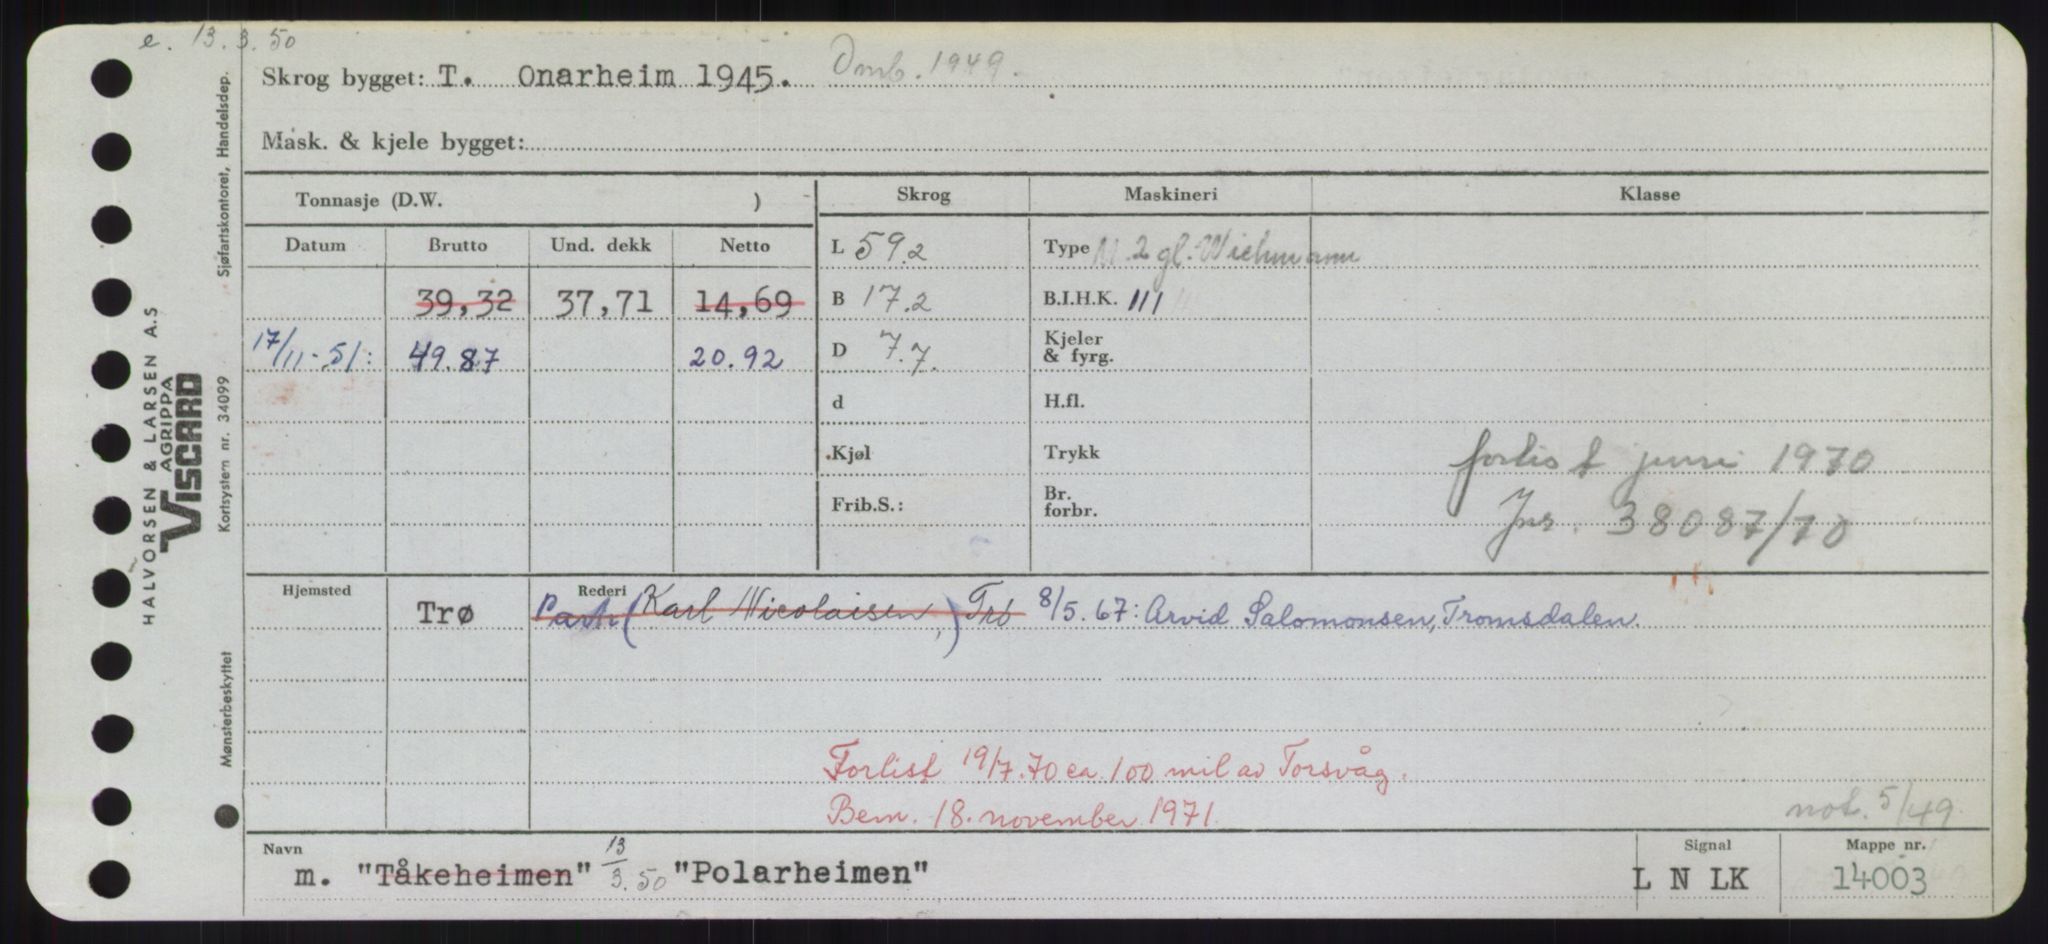 e. 13.3.50
Skrog bygget: T. Onarheim 1945. Omb. 1949.
Mask. & kjele bygget:
Tonnasje (D.W. )
Skrog
Maskineri
Klasse
Datum Brutto Und. dekk Netto
L 59.2
Type M. 2 gl. Wichmann
39,32 37,71 14,69
B 17.2
B.I.H.K. 111
17/11-51: 49.87 20.92
D 7.7.
Kjeler
& fyrg.
d
H.fl.
Kjøl
Trykk
forlist juni 1970
Frib.S.:
Br.
forbr.
Jns. 38087/70
Hjemsted
Rederi
Trø
Partr (Karl Nicolaisen,) Trø 8/5.67: Arvid Salomonsen, Tromsdalen.
Forlist 19/7.70 ca. 100 mil av Torsvåg.
Bem. 18. november 1971.
not. 5/49
Navn
m. "Tåkeheimen" 13/3.50 "Polarheimen"
Signal
L N LK
Mappe nr.
14003
Sjøfartskontoret, Handelsdep.
Kortsystem nr. 34099
Mønsterbeskyttet
HALVORSEN & LARSEN A.S
AGRIPPA
VISCARD